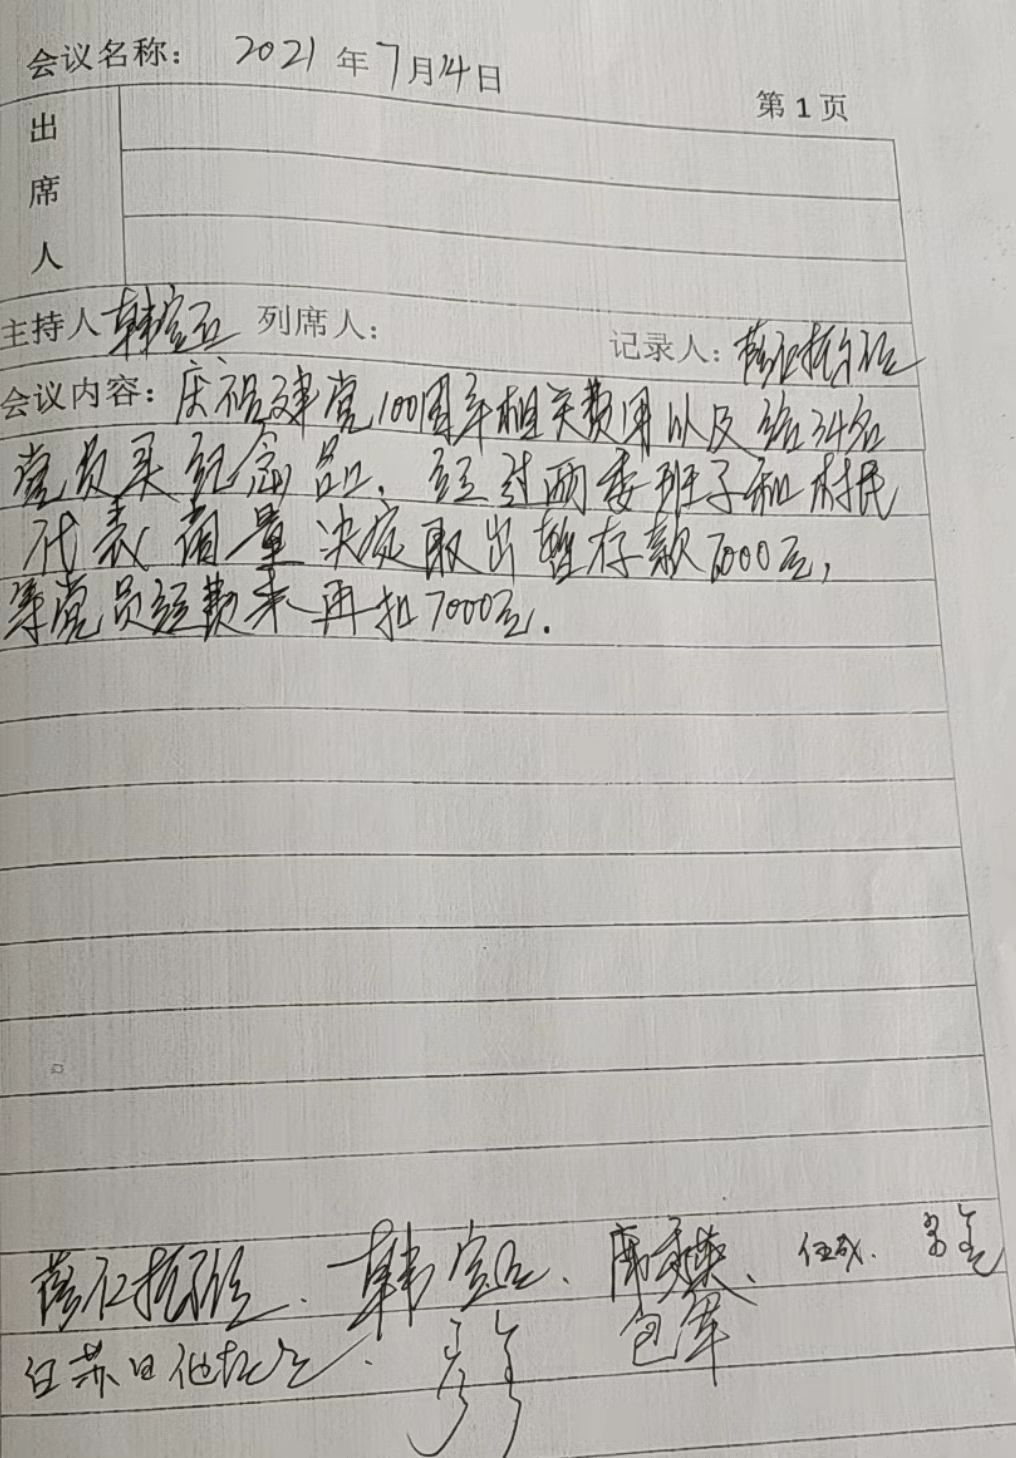 会议名称： 2021年7月14日
第1页
出
席
人
主持人 韩宝石 列席人： 记录人：
会议内容：庆祝建党100周年相关费用以及给34名
党员买纪念品，经过两委班子和村民
代表商量决定取出暂存款7000元，
等党员经费来再扣7000元.
韩宝石、任成.
包军